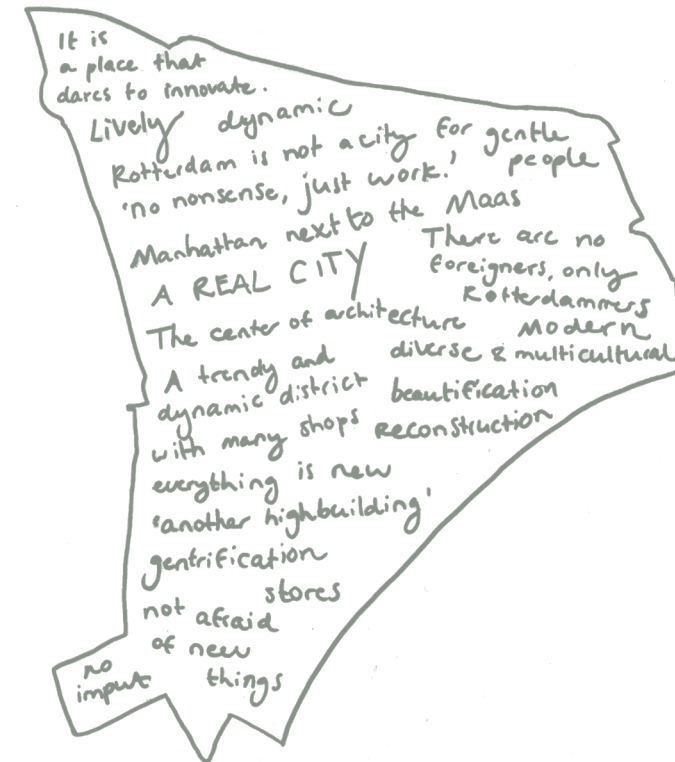 It is
a place that
dares to innovate.
Lively dynamic
Rotterdam is not a city for gentle
people
'no nonsense, just work.'
Manhattan next to the Maas
A REAL CITY
There are no
foreigners, only
Rotterdammers
The center of architecture
Modern
diverse & multicultural
A trendy and
dynamic district
with many shops
beautification
reconstruction
everything is new
'another highbuilding'
gentrification
stores
not afraid
of new
things
no
imput